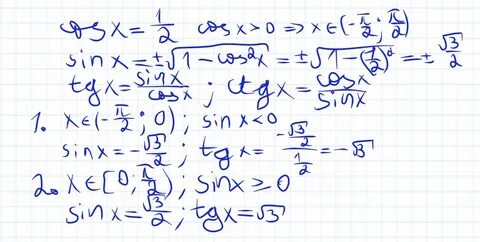 cos x = 1/2   cos x > 0 => x ∈ (-π/2; π/2)
sin x = ±√(1 - cos²x) = ±√(1 - (1/2)²) = ± √3/2
tg x = sin x / cos x ; ctg x = cos x / sin x
1. x ∈ (-π/2; 0) ; sin x < 0
sin x = -√3/2 ; tg x = (-√3/2) / (1/2) = -√3
2. x ∈ [0; π/2) ; sin x ≥ 0
sin x = √3/2 ; tg x = √3